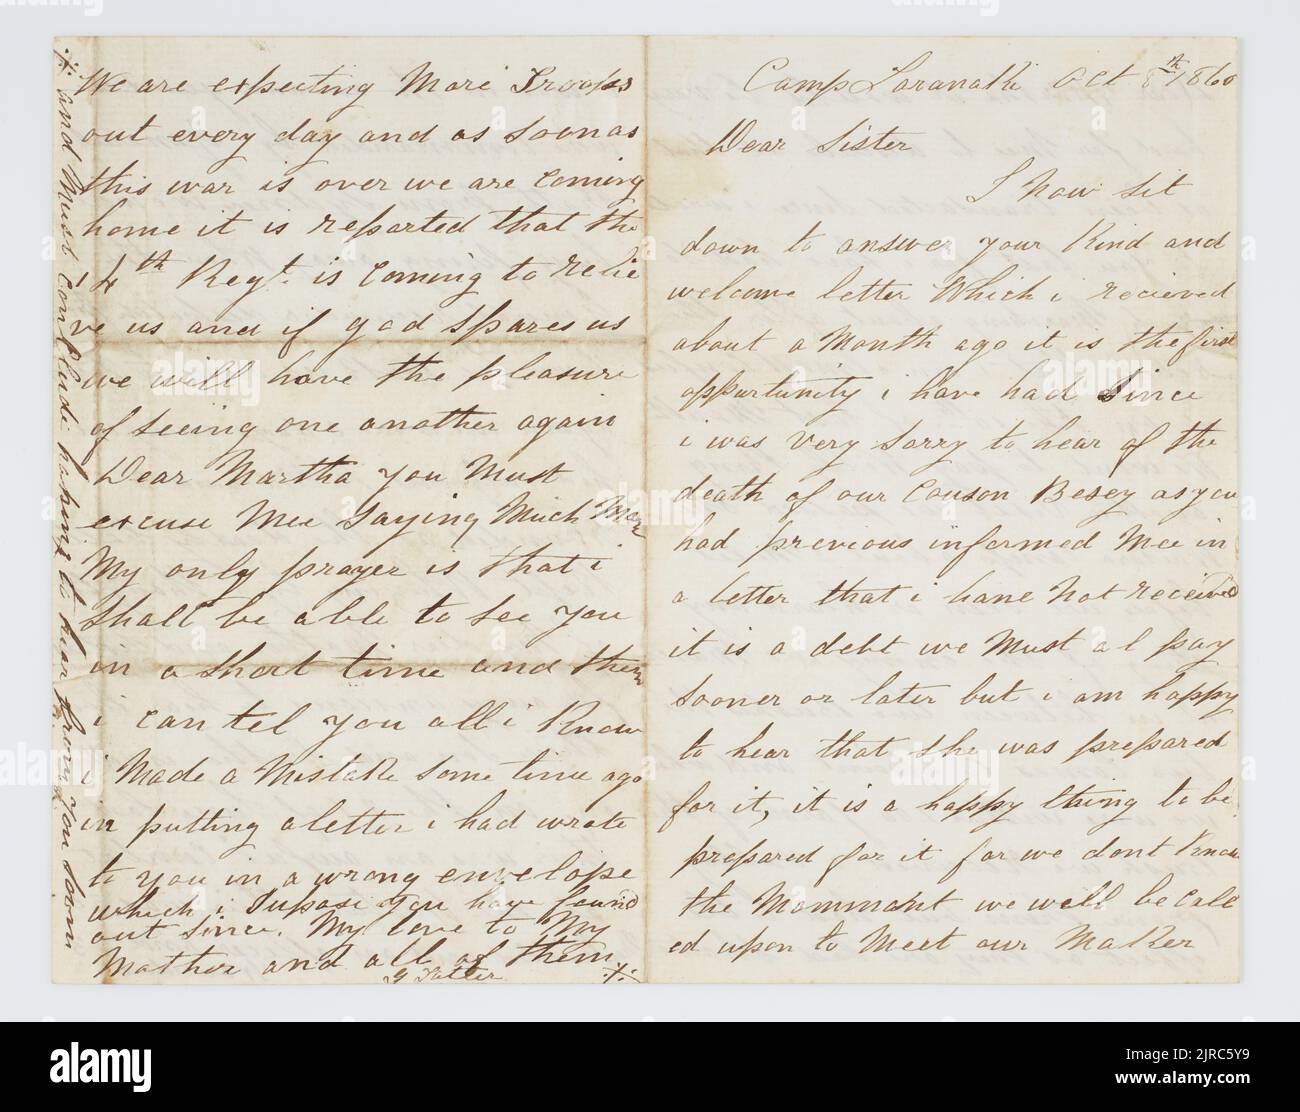 Camp Taranaki Oct 8th 1860
Dear Sister
I now sit
down to answer your Kind and
welcome letter Which i recieved
about a Month ago it is the first
oppurtunity i have had Since
i was very sorry to hear of the
death of our Couson Besey as you
had previous informed Mee in
a letter that i have Not received
it is a debt we Must al pay
sooner or later but i am happy
to hear that she was prepared
for it, it is a happy thing to be
prepared for it for we dont Know
the Momment we will be Call
ed upon to Meet our Maker
We are expecting More Troops
out every day and as soon as
this war is over we are Coming
home it is reported that the
14th Regt. is Coming to relie
ve us and if god Spares us
we will have the pleasure
of seeing one another again
Dear Martha you Must
excuse Mee Saying Much More
My only prayer is that i
Shall be able to see you
in a Short time and then
i can tel you all i Know
i Made a Mistake some time ago
in putting a letter i had wrote
to you in a wrong envelope
which i Supose you have found
out since. My love to My
Mother and all of them
and Must Conclude hoping to hear from you soon
alamy
Image ID: 2JRC5Y9
www.alamy.com